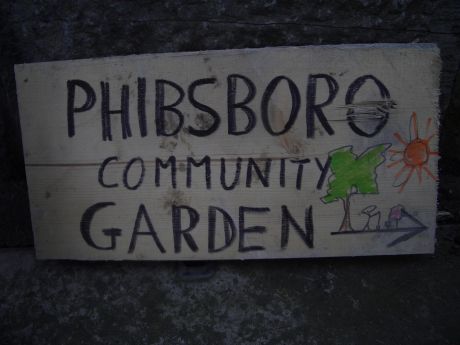 PHIBSBORO
COMMUNITY
GARDEN